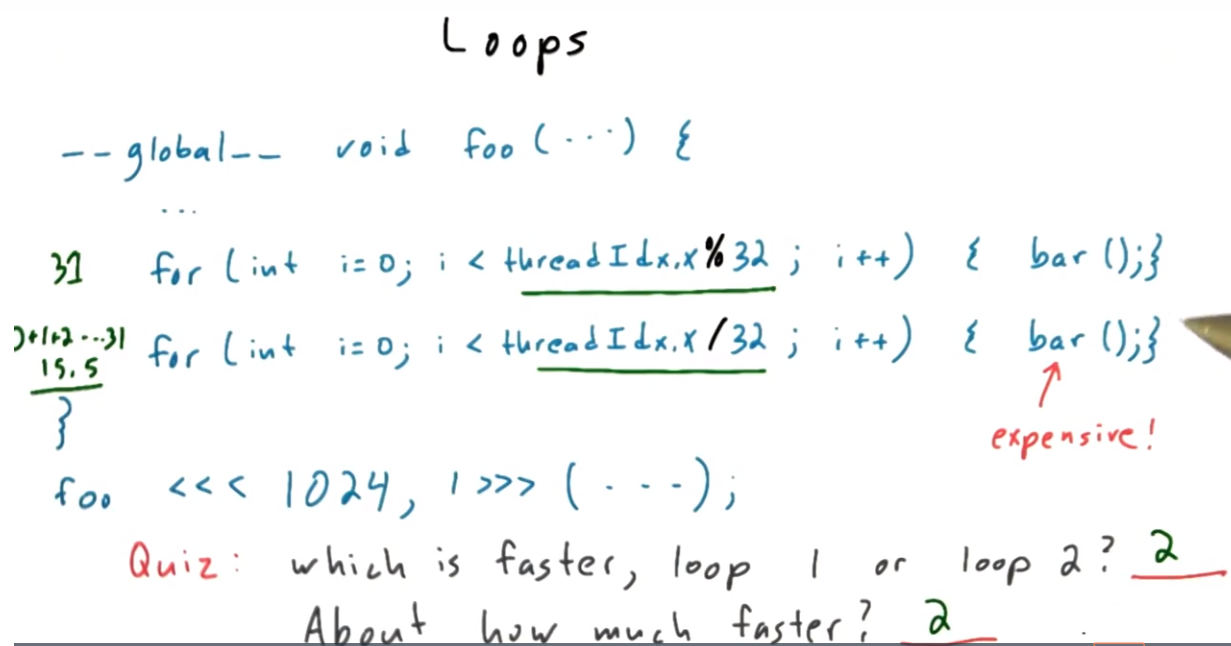 Loops
--global-- void foo (...) {
...
31 for (int i=0; i < threadIdx.x % 32 ; i++) { bar ();}
0+1+2...31
15.5
for (int i=0; i < threadIdx.x / 32 ; i++) { bar ();}
expensive!
}
foo <<< 1024, 1 >>> (...);
Quiz: which is faster, loop 1 or loop 2? 2
About how much faster? 2